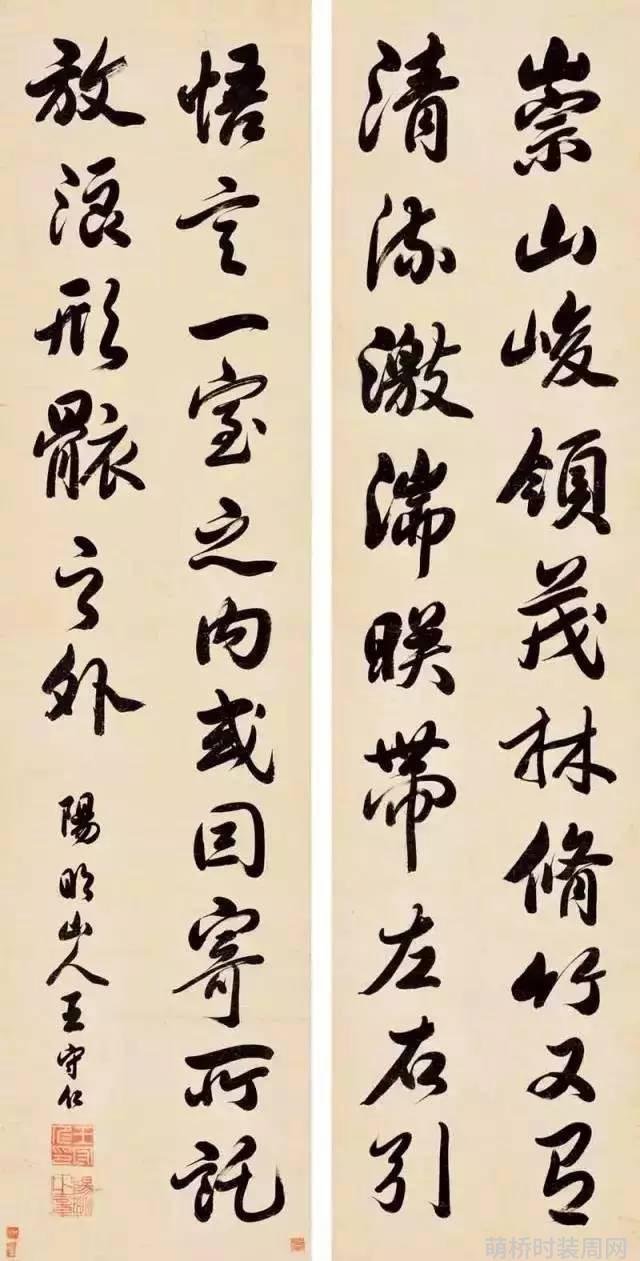 崇山峻領茂林脩竹又有
清流激湍暎帶左右引
悟言一室之內或因寄所託
放浪形骸之外
陽明山人王守仁
萌桥时装周网